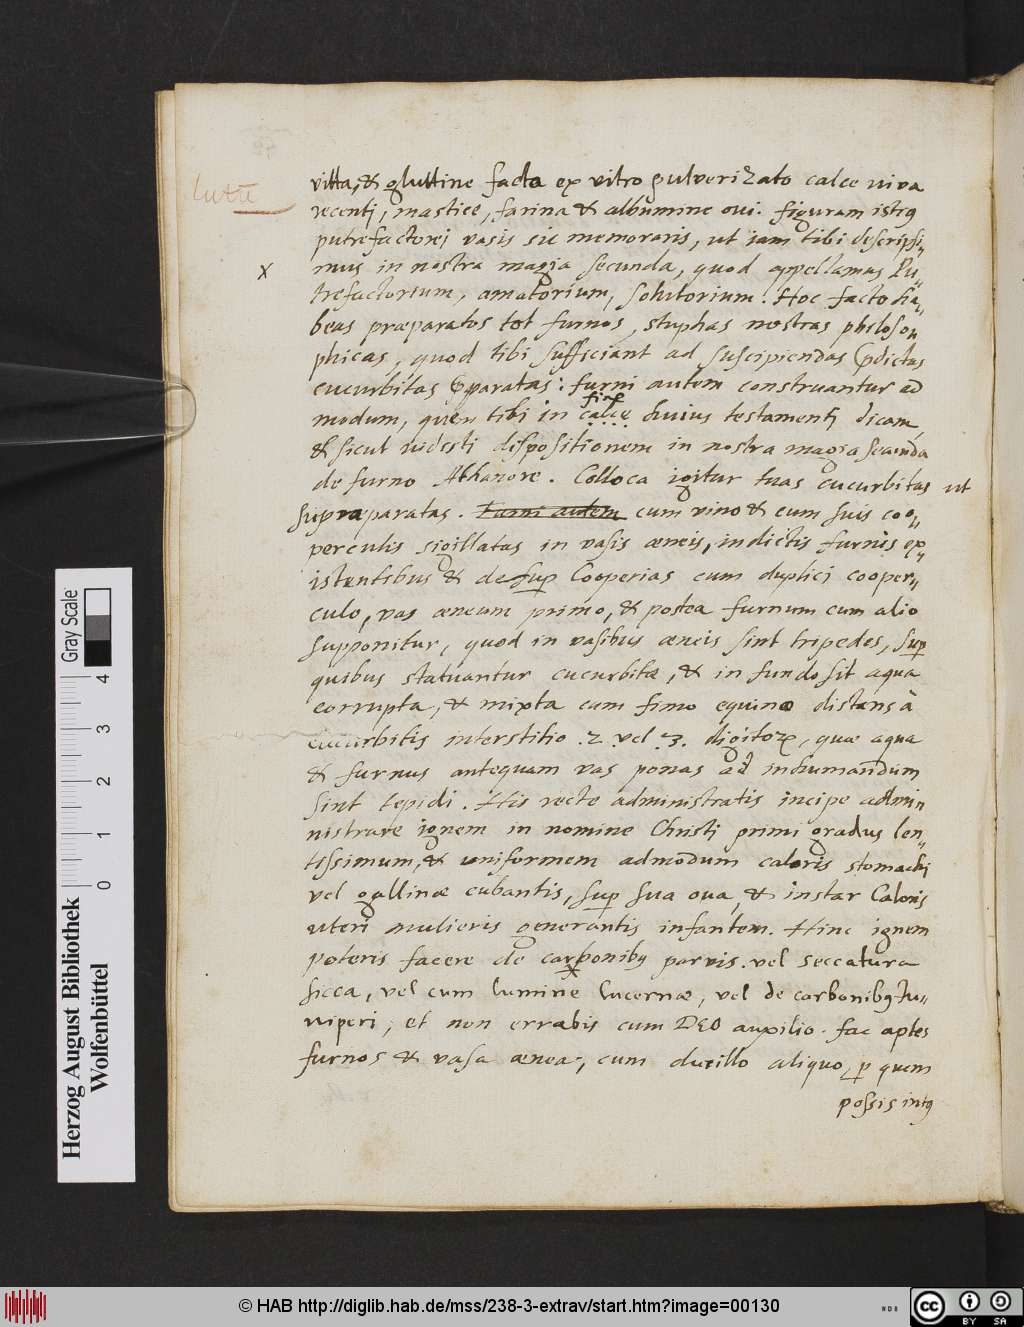 lutũ
vitta, & gluttine facta ex vitro pulverizato calce viva
recentj, mastice, farina & albumine ovi. figuram istiq
putrefactorij vasis sic memoraris, ut iam tibi descripsi-
x
mus in nostra magia secunda, quod appellamus Pu-
trefactorium, amatorium, solutorium. Hoc facto ha-
beas præparatos tot furnos, stuphas nostras philoso-
phicas, quod tibi sufficiant ad suscipiendas pdictas
cucurbitas pparatas: furni autem construantur ad
fine
modum, quem tibi in calce huius testamentj dicam,
& sicut vidisti dispositionem in nostra magia secunda
de furno Athanore. Colloca igitur tuas cucurbitas ut
supra præparatas. Furni autem cum vino & cum suis coo-
perculis sigillatas in vasis æneis, in dictis furnis ex-
istentibus & desup Cooperias cum duplicj cooper-
culo, vas æneum primo, & postea furnum cum alio
supponitur, quod in vasibus æneis sint tripedes, sup
quibus statuantur cucurbitæ, & in fundo sit aqua
corrupta, & mixta cum fimo equino distans à
cucurbitis interstitio .2. vel .3. digitoꝝ, quæ aqua
& furnus antequam vas ponas ad inhumandum
sint tepidi. His recte administratis incipe admi-
nistrare ignem in nomine Christj primi gradus len-
tissimum, & uniformem admodum caloris stomachj
vel gallinæ cubantis, sup sua ova, & instar Caloris
uteri mulieris generantis infantem. Hinc ignem
poteris facere de carbonibq parvis. vel seccatura
sicca, vel cum lumine lucernæ, vel de carbonibq Iu-
niperi, et non errabis cum DEO auxilio. fac aptes
furnos & vasa ænea, cum ducillo aliquo, p quem
possis intq
Gray Scale
0 1 2 3 4
Herzog August Bibliothek
Wolfenbüttel
© HAB http://diglib.hab.de/mss/238-3-extrav/start.htm?image=00130
cc BY SA